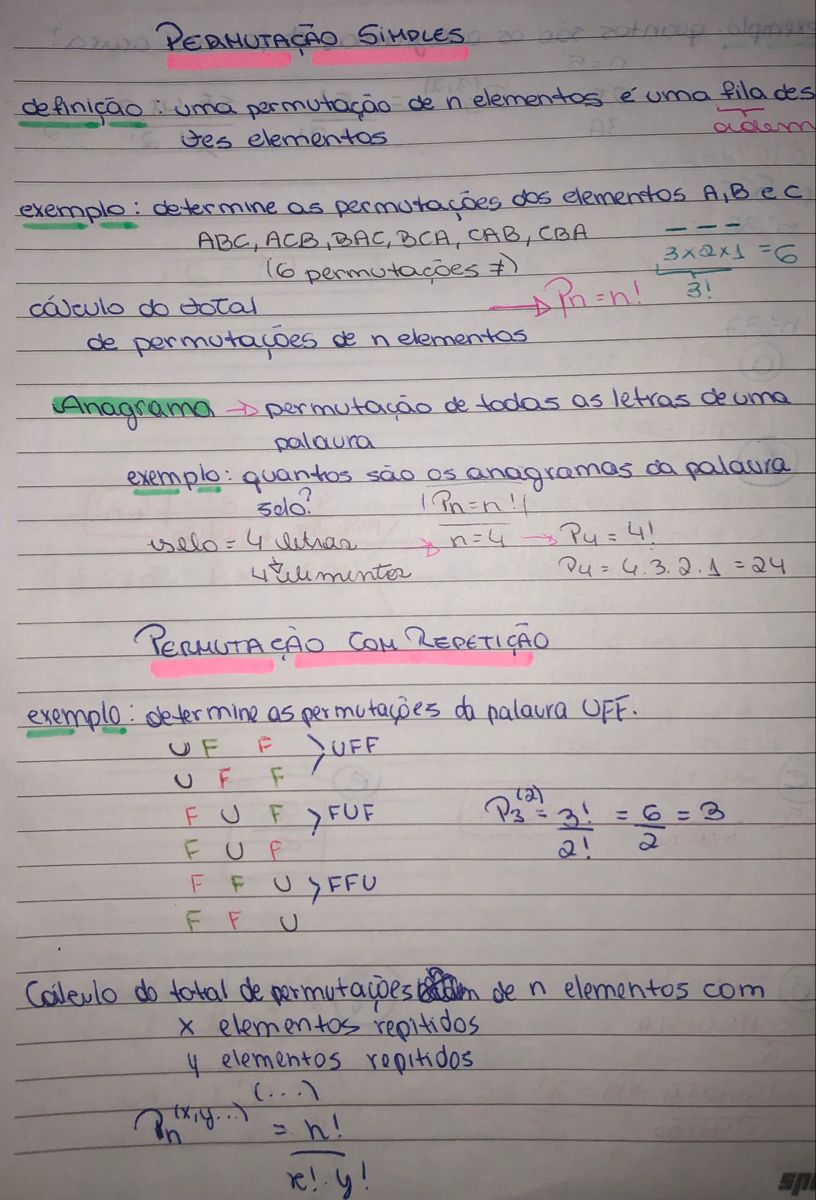 PERMUTAÇÃO SIMPLES
definição: uma permutação de n elementos é uma fila des
tes elementos
exemplo: determine as permutações dos elementos A, B e C
ABC, ACB, BAC, BCA, CAB, CBA
3x2x1 = 6
(6 permutações ≠)
3!
cálculo do total → Pn = n!
de permutações de n elementos
Anagrama → permutação de todas as letras de uma
palavra
exemplo: quantos são os anagramas da palavra
selo? Pn = n!
selo = 4 letras → n = 4 → P4 = 4!
4 elementos P4 = 4.3.2.1 = 24
PERMUTAÇÃO COM REPETIÇÃO
exemplo: determine as permutações da palavra UFF.
U F F > UFF
U F F
F U F > FUF P3^(2) = 3!/2! = 6/2 = 3
F U F
F F U > FFU
F F U
Cálculo do total de permutações de n elementos com
x elementos repitidos
y elementos repitidos
(...)
Pn^(x,y...) = n!/x!.y!